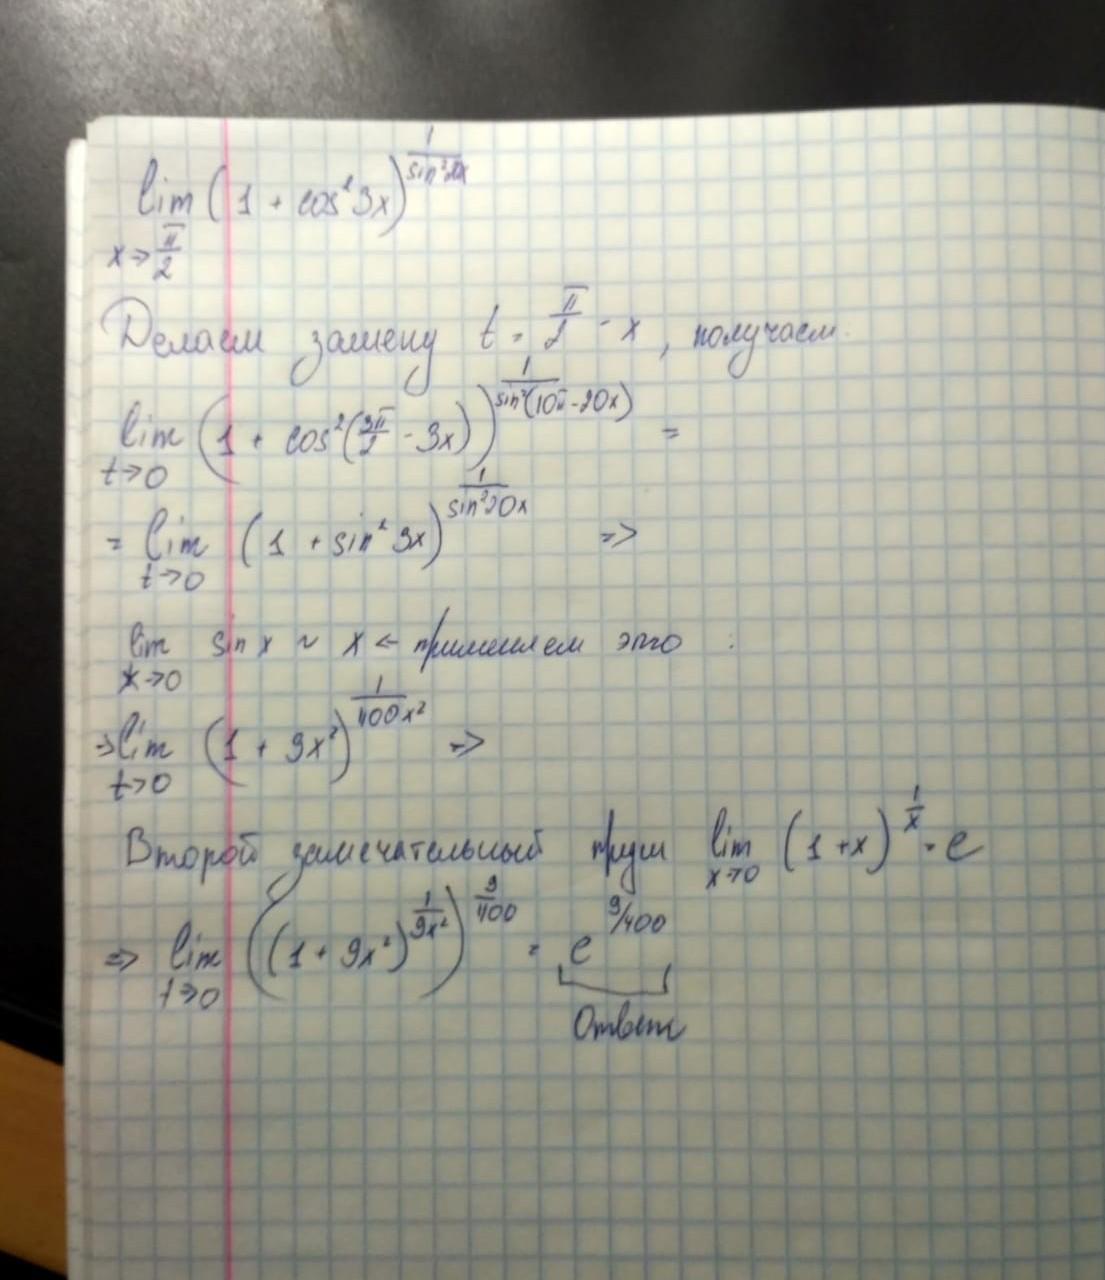 lim (1 + cos²3x)^(1/sin²20x)
x→π/2
Делаем замену t = π/2 - x, получаем
lim (1 + cos²(3π/2 - 3x))^(1/sin²(10π-20x)) =
t→0
= lim (1 + sin²3x)^(1/sin²20x) =>
t→0
lim sin x ~ x ← применяем это :
x→0
=> lim (1 + 9x²)^(1/400x²) =>
t→0
Второй замечательный lim (1+x)^(1/x) = e
x→0
=> lim ((1+9x²)^(1/9x²))^(9/400) = e^(9/400)
t→0
Ответ